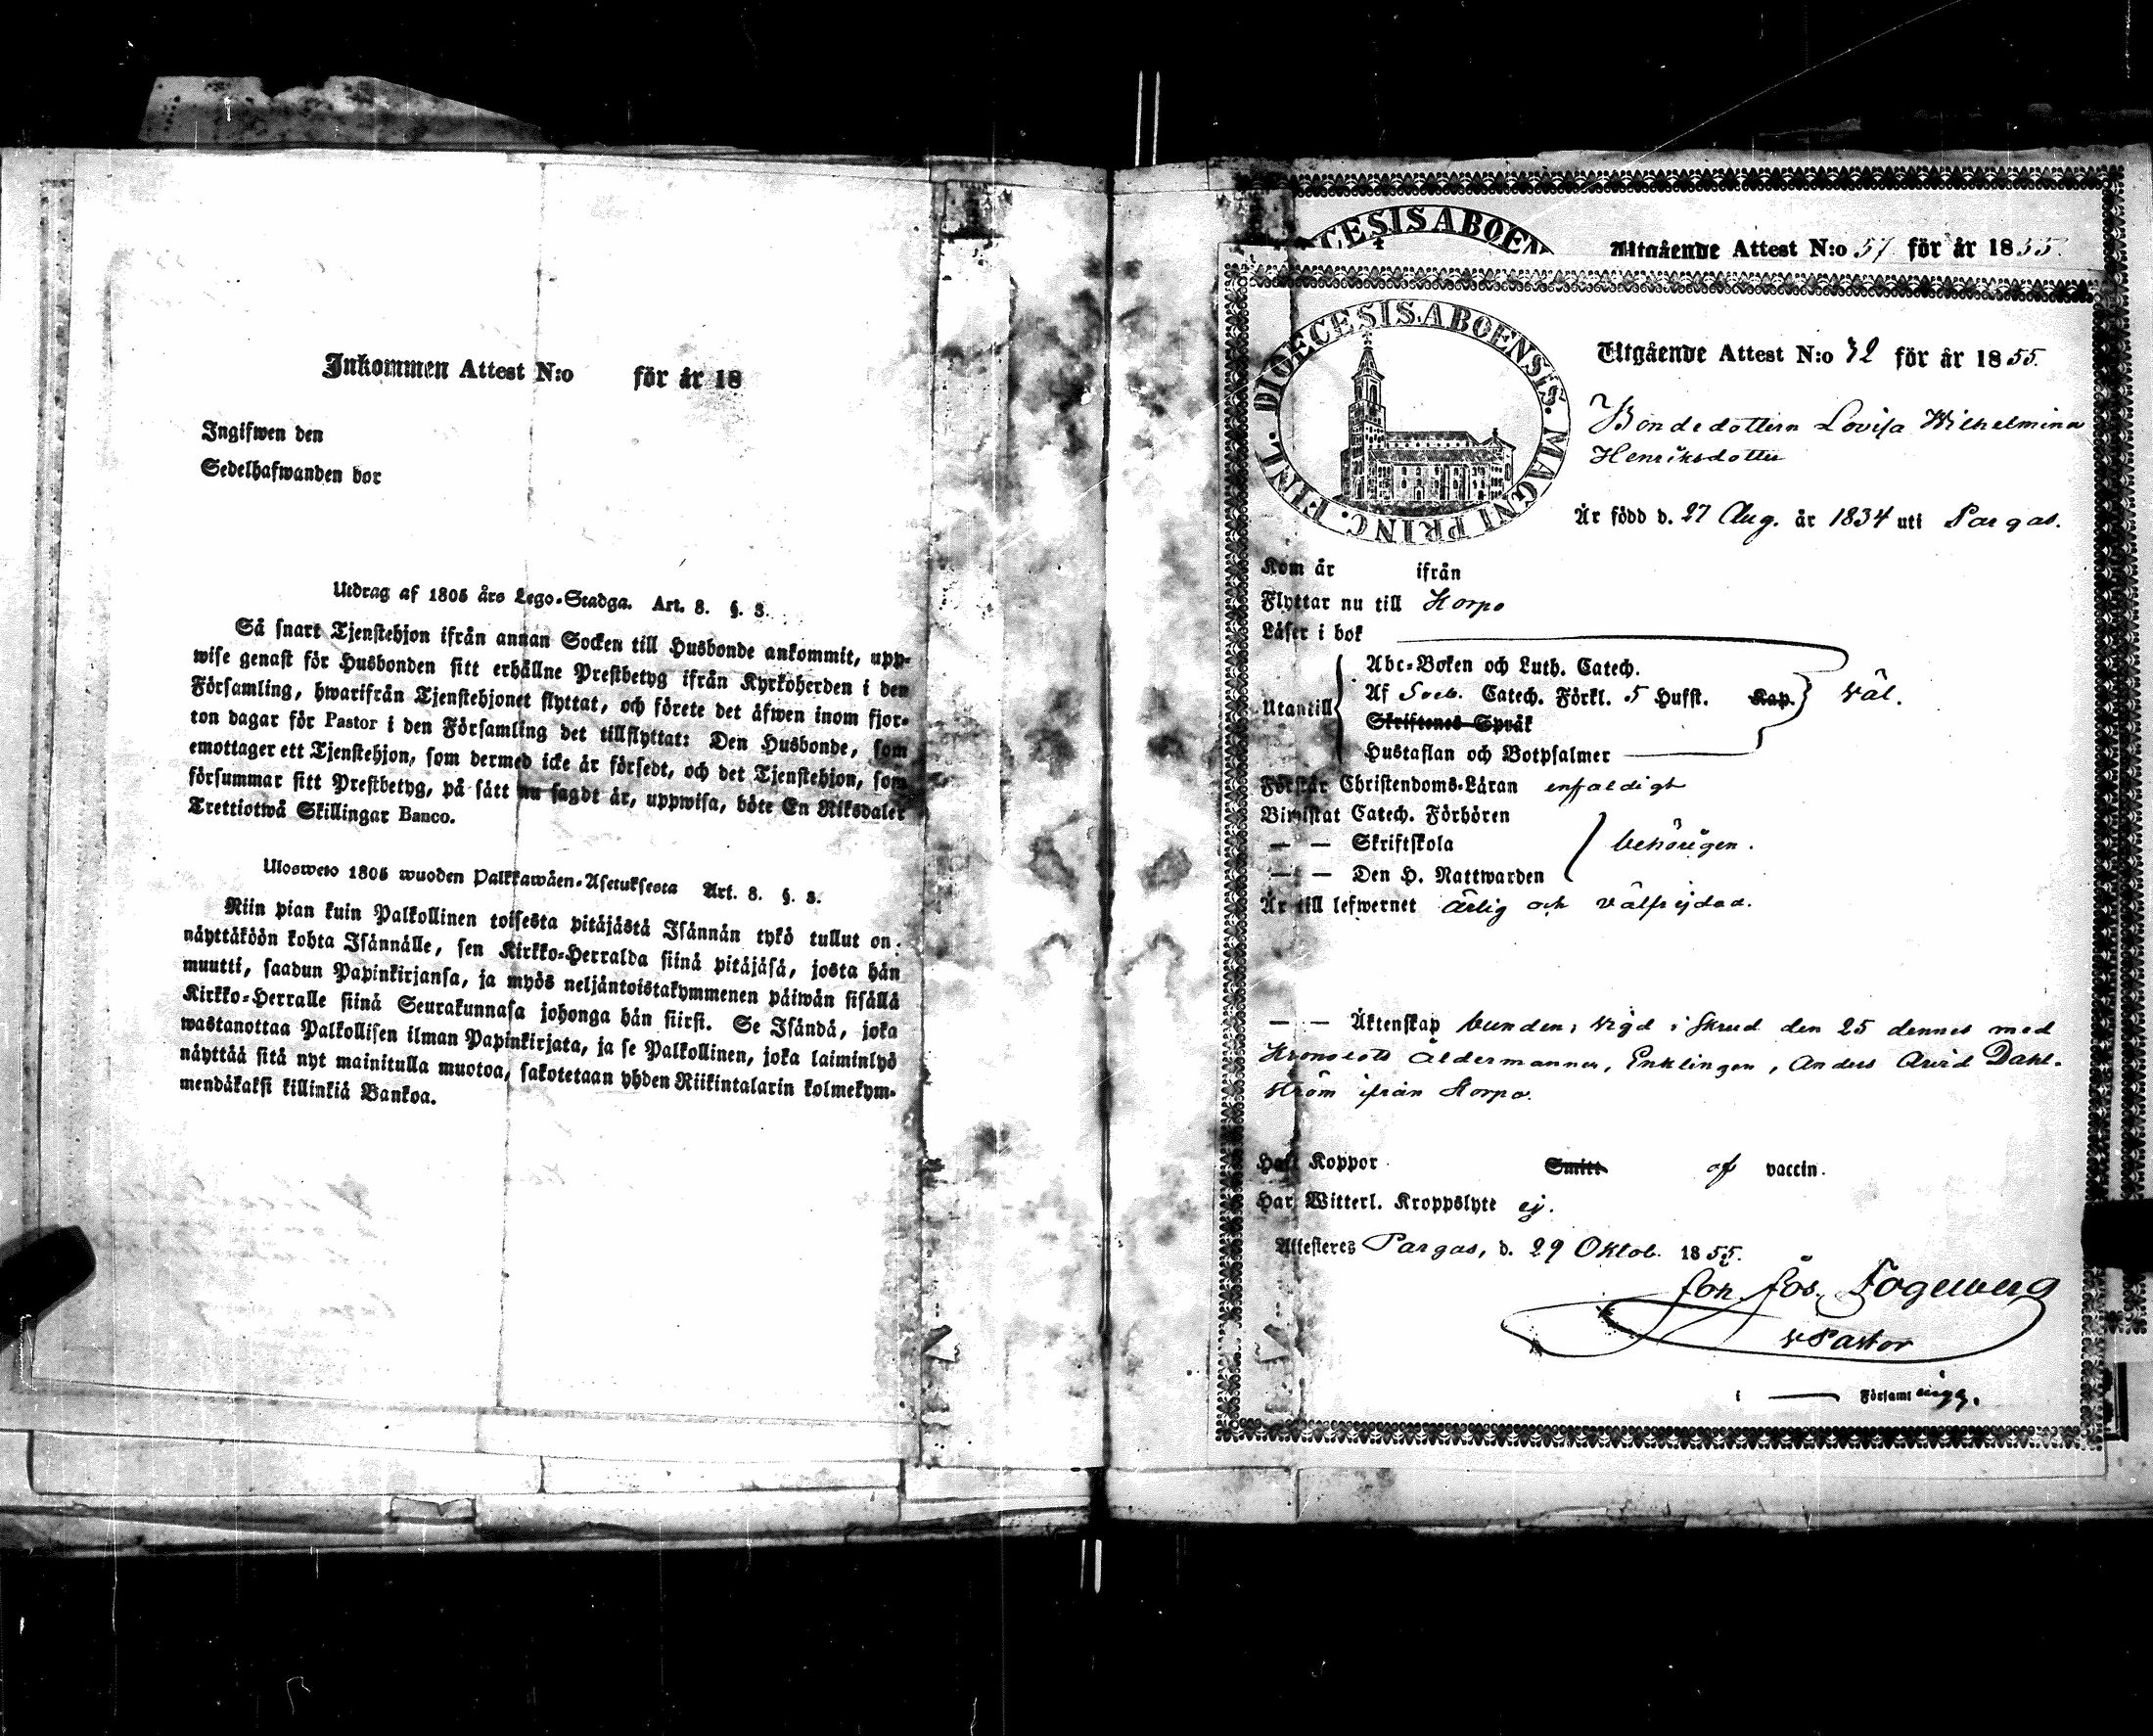 Inkommen Attest N:o för år 18
Ingifwen den
Sedelhafwanden bor
Utdrag af 1805 års Lego-Stadga. Art. 8. §. 3.
Så snart Tjenstehjon ifrån annan Socken till Husbonde ankommit, upp-
wise genast för Husbonden sitt erhållne Prestbetyg ifrån Kyrkoherden i den
Församling, hwarifrån Tjenstehjonet flyttat, och förete det äfwen inom fjor-
ton dagar för Pastor i den Församling det tillflyttat: Den Husbonde, som
emottager ett Tjenstehjon, som dermed icke är försedt, och det Tjenstehjon, som
försummar sitt Prestbetyg, på sätt nu sagdt är, uppwisa, böte En Riksdaler
Trettiotwå Skillingar Banco.
Ulosweto 1805 wuoden Palkkawäen-Asetuksesta Art. 8. §. 3.
Niin pian kuin Palkollinen toisesta pitäjästä Isännän tykö tullut on,
näyttäköön kohta Isännälle, sen Kirkko-Herralda siinä pitäjäsä, josta hän
muutti, saadun Papinkirjansa, ja myös neljäntoistakymmenen päiwän sisällä
Kirkko-Herralle siinä Seurakunnasa johonga hän siirsi. Se Isändä, joka
wastanottaa Palkollisen ilman Papinkirjata, ja se Palkollinen, joka laiminlyö
näyttää sitä nyt mainitulla muotoa, sakotetaan yhden Riikintalarin kolmekym-
mendäkaksi killinkiä Bankoa.
Utgående Attest N:o 57 för år 1855.
DIOECESIS ABOENSIS. MAGNI PRINC. FINL.
Utgående Attest N:o 72 för år 1855.
Bondedottern Lovisa Wilhelmina
Henriksdotter
Är född d. 27 Aug. år 1834 uti Pargas.
Kom år ifrån
Flyttar nu till Korpo
Läser i bok
Abc-Boken och Luth. Catech.
Utantill Af Sveb. Catech. Förkl. 5 Hufst. Kap. väl.
Skriftenes Språk
Hustaflan och Botpsalmer
Förstår Christendoms-Läran enfaldigt
Biwistat Catech. Förhören
— — Skriftskola behörigen.
— — Den H. Nattwarden
Är till lefwernet ärlig och välfrejdad.
— — Äktenskap bunden; vigd i Skrud den 25 dennes med
Kronolots Åldermannen, Enklingen, Anders Arvid Dahl-
ström ifrån Korpo.
Haft Koppor Smitt af vaccin.
Har Witterl. Kroppslyte ej.
Attesteres Pargas, d. 29 Oktob. 1855.
Joh. Jos. Fogelberg
v Pastor
i — Församlingg.